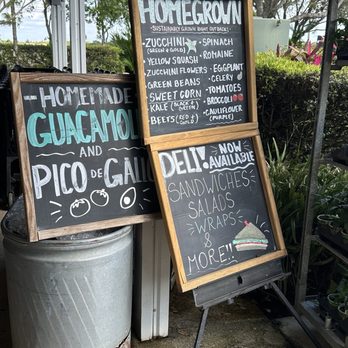 HOMEMADE
GUACAMOL
AND
PICO DE GALLO
HOMEGROWN
*SUSTAINABLY GROWN RIGHT OUTBACK*
* ZUCCHINI
(GREEN & GOLD)
* YELLOW SQUASH
* ZUCCHINI FLOWERS
* GREEN BEANS
* SWEET CORN
* KALE (BLACK & GREEN)
* BEETS (RED)
* SPINACH
* ROMAINE
* EGGPLANT
* CELERY
* TOMATOES
* BROCCOLI
* CAULIFLOWER
(PURPLE)
DELI! NOW
AVAILABLE
SANDWICHES
SALADS
WRAPS
&
MORE!!